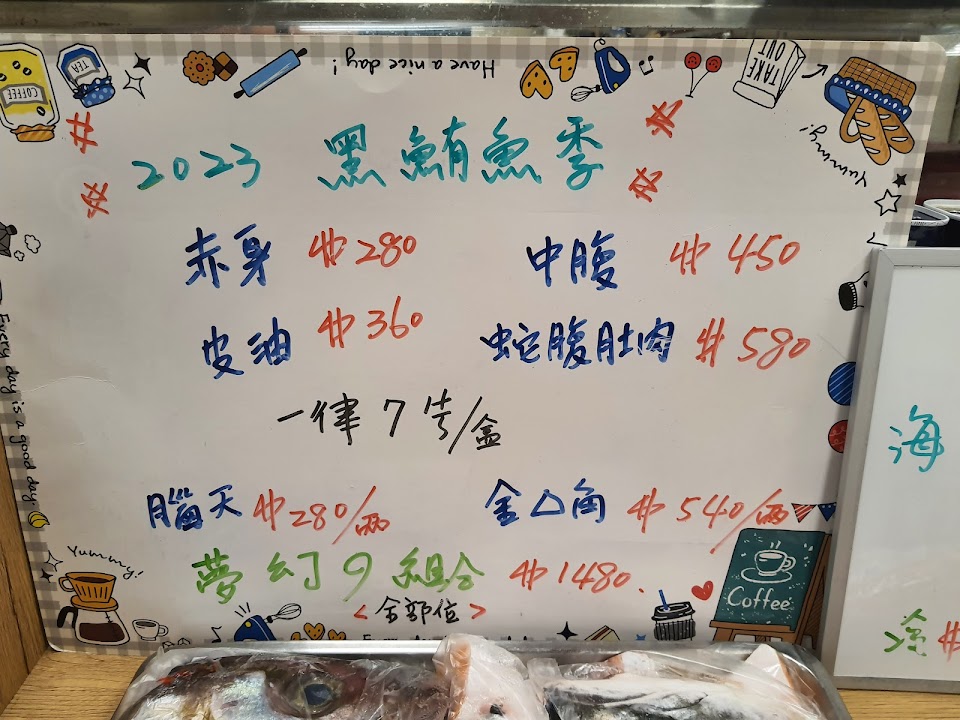 COFFEE
TEA
Have a nice day!
TAKE OUT
Yummy!
2023 黑鮪魚季
赤身 $280 中腹 $450
皮油 $360 蛇腹肚肉 $580
一律7片/盒
腦天 $280/兩 金△角 $540/兩
夢幻9組合 $1480.
<全部位>
Every day is a good day.
Yummy!
Coffee
海